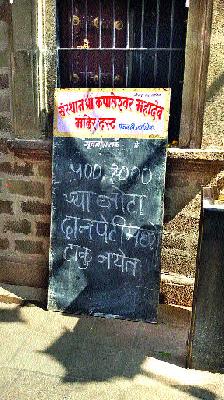 संस्थान श्री कपालेश्वर महादेव
मंदिर ट्रस्ट पंचवटी, नाशिक
सूचना फलक
५००, १०००
च्या नोटा
दानपेटीमध्ये
टाकु नयेत